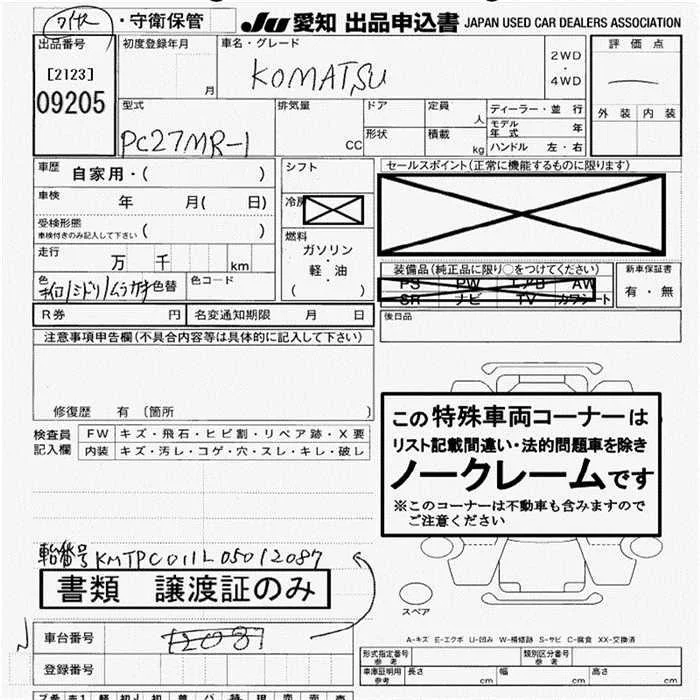 ・守衛保管
JU 愛知 出品申込書 JAPAN USED CAR DEALERS ASSOCIATION
出品番号
[2123]
09205
初度登録年月
月
車名・グレード
KOMATSU
2WD
・
4WD
評価点
外装 内装
型式
PC27MR-1
排気量
CC
ドア
形状
定員
人
積載
kg
ディーラー・並行
モデル年式 年
ハンドル 左・右
車歴 自家用・( )
車検 年 月( 日)
受検形態
車検付きのみ記入して下さい ( )
走行
万 千 km
色
色替
色コード
シフト
冷房
燃料
ガソリン
・
軽・油
( )
セールスポイント(正常に機能するものに限ります)
装備品(純正品に限り○をつけてください)
PS PW エアB AW
SR ナビ TV カワシート
新車保証書
有・無
後日品
R券 円 名変通知期限 月 日
注意事項申告欄(不具合内容等は具体的に記入して下さい)
修復歴 有 〔箇所 〕
検査員
記入欄
FW キズ・飛石・ヒビ割・リペア跡・X要
内装 キズ・汚レ・コゲ・穴・スレ・キレ・破レ
この特殊車両コーナーは
リスト記載間違い・法的問題車を除き
ノークレームです
※このコーナーは不動車も含みますので
ご注意ください
車台番号 KMTPC011L05012087
書類 譲渡証のみ
スペア
車台番号
登録番号
A-キズ E-エクボ U-凹み W-補修跡 S-サビ C-腐食 XX-交換済
形式指定番号
参考
類別区分番号
参考
車庫証明用
参考
長さ cm 幅 cm 高さ cm